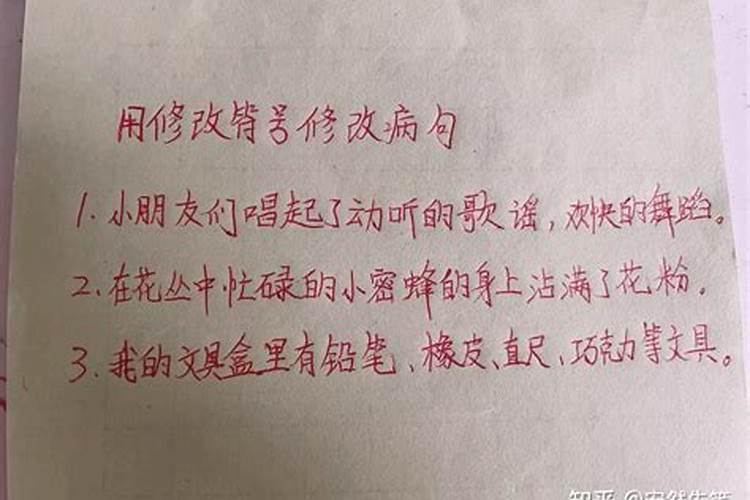 用修改符号修改病句
1. 小朋友们唱起了动听的歌谣,欢快的舞蹈。
2. 在花丛中忙碌的小蜜蜂的身上沾满了花粉。
3. 我的文具盒里有铅笔、橡皮、直尺、巧克力等文具。
知乎